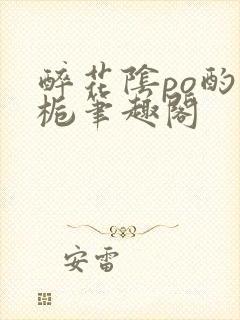 醉花陰po酌
栀筆趣閣
安雷